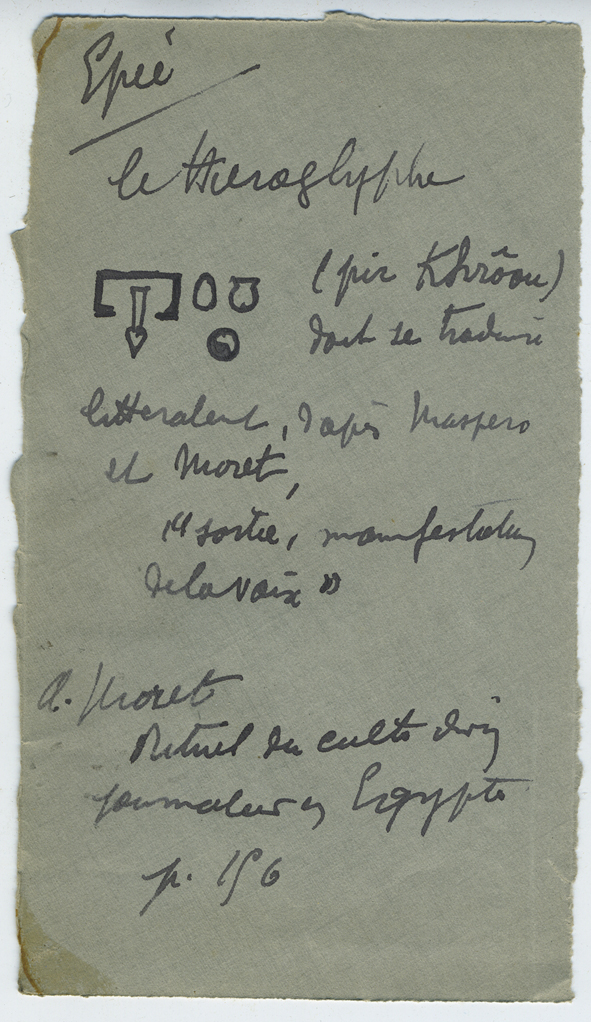 Epée
le Hieroglyphe
(pir Khrôou)
doit se traduire
litteralent, d'après Maspero
et Moret,
"sortie, manifestation
de la voix"
A. Moret
Rituel du culte divin
journalier en Egypte
p. 156